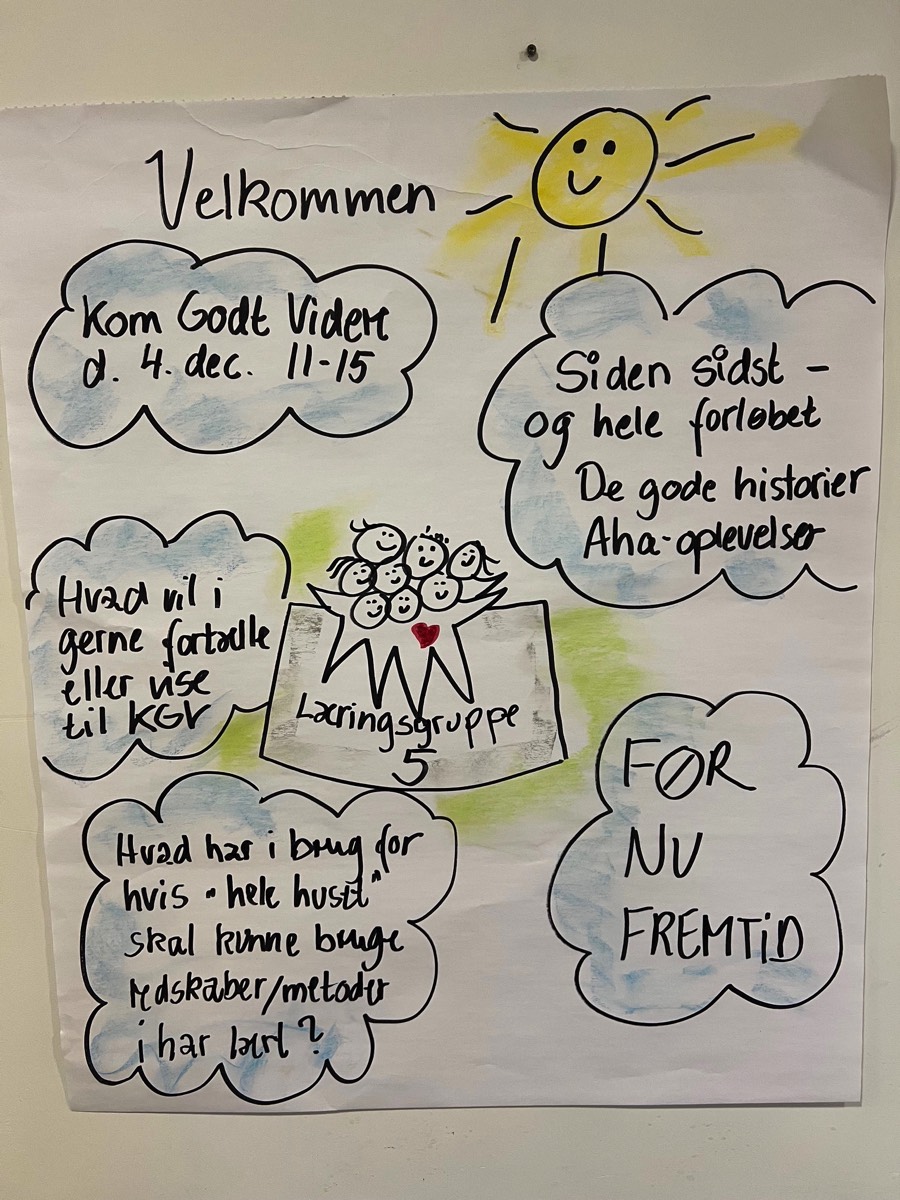 Velkommen
Kom Godt Videre
d. 4. dec. 11-15
Siden sidst -
og hele forløbet
De gode historier
Aha-oplevelser
Hvad vil i
gerne fortælle
eller vise
til KGV
Læringsgruppe
5
Hvad har i brug for
hvis "hele huset"
skal kunne bruge
redskaber/metoder
i har lært?
FØR
NU
FREMTiD